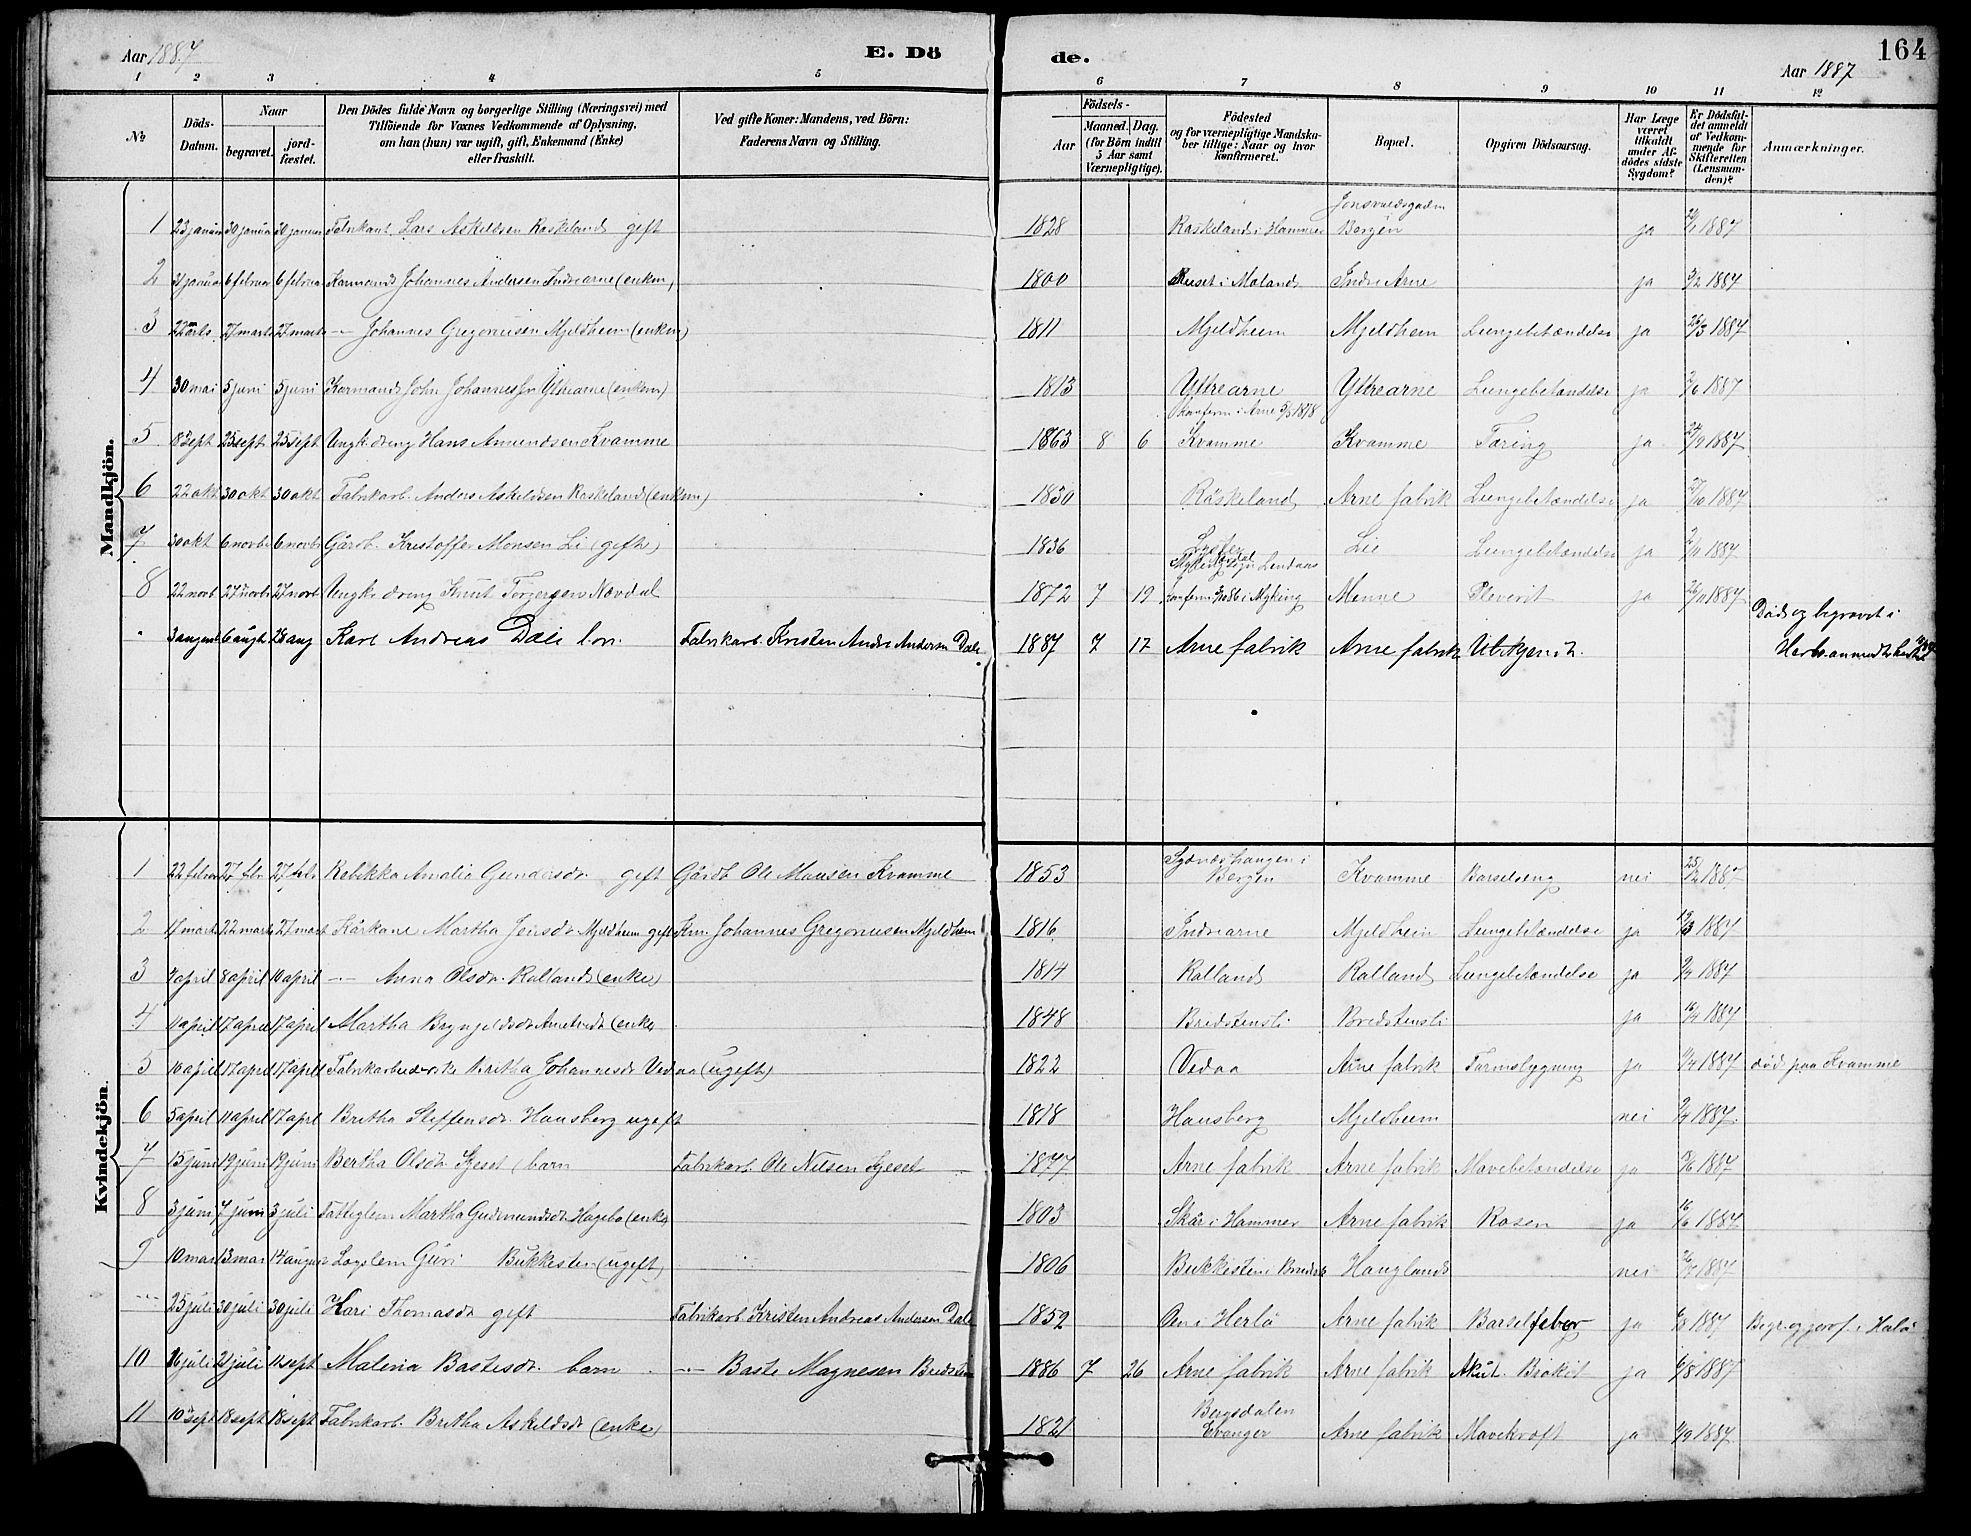 Aar 1887
E. Dö
de.
Aar 1887
164
1 2 3 4 5 6 7 8 9 10 11 12
№
Döds-Datum.
Naar
begravet.
jord-fæstet.
Den Dödes fulde Navn og borgerlige Stilling (Næringsvei) med
Tilföiende for Voxnes Vedkommende af Oplysning,
om han (hun) var ugift, gift, Enkemand (Enke)
eller fraskilt.
Ved gifte Koner: Mandens, ved. Börn:
Faderens Navn og Stilling.
Födsels-
Aar
Maaned.
Dag.
(for Börn indtil
5 Aar samt
Værnepligtige).
Födested
og for værnepligtige Mandska-
ber tillige: Naar og hvor
konfirmeret.
Bopæl.
Opgiven Dödsaarsag.
Har Læge
været
tilkaldt
under Af-
dödes sidste
Sygdom?
Er Dödsfal-
det anmeldt
af Vedkom-
mende for
Skifteretten
(Lensman-
den)?
Anmærkninger.
Mandkjön.
1 23 januar 30 januar 30 januar Fabrikarb. Lars Askeldsen Raskeland gift 1828 Raskeland i Hammer Bergen ja 1887
2 januar 6 februar 6 februar Kaarmand Johannes Andersen Indrearne (enkem) 1800 Indre Arne ja 5/2 1887
3 22 marts 27 marts 27 marts -"- Johannes Gregoriusen Mjeldheim (enkem) 1811 Mjeldheim Mjeldheim Lungebetændelse ja 26/3 1887
4 30 mai 5 juni 5 juni Kaarmand John Johannessen Ytrearne (enkem) 1813 Ytrearne Ytrearne Lungebetændelse ja 1887
konferm i Arne 1878
5 18 sept 25 sept 25 sept Ungk. dreng Hans Amundsen Kvamme 1863 8 6 Kvamme Kvamme Tæring ja 24/9 1887
6 22 okt 30 okt 30 okt Fabrikarb. Anders Askeldsen Raskeland (enkem) 1830 Raskeland Arne fabrik Lungebetændelse ja 27/10 1887
7 30 okt 6 novbr 6 novbr Gårdb. Kristoffer Monsen Li (gift) 1836 Lie Lungebetændelse ja 1887
8 22 novb 27 novbr 27 novb Ungk. dreng Knut Torgersen Nævdal 1872 7 19 Myking Menne Pleverit ja 26/11 1887
3 august 6 augt 28 aug Karl Andreas Dale Fabrikarb. Kristen Andr. Andersen Dale 1887 7 17 Arne fabrik Arne fabrik Ubekjendt. Död og begravet i
Kvindekjön.
1 22 februar 27 febr 27 febr Rebikka Amalia Gundersdr. gift Gårdb Ole Monsen Kvamme 1853 Sydneshaugen i Bergen Kvamme Barselseng nei 25/2 1887
2 17 mart 22 marts 27 mart Kårkone Martha Jensdr Mjeldheim gift Km. Johannes Gregoriusen Mjeldheim 1816 Indrearne Mjeldheim Lungebetændelse ja 19/3 1887
3 april 8 april 10 april -"- Anna Olsdr. Kalland (enke) 1814 Kalland Kalland Lungebetændelse ja 1887
4 11 april 17 april 17 april Martha Bryngelsdr Arnetvedt (enke 1848 Bredstensli Bredstensli ja 16/4 1887
5 10 april 17 april 17 april Fabrikarbeiderske Britha Johannesdr Vedaa (ugift) 1822 Vedaa Arne fabrik Tarmslygning ja 1887 död paa Kvamme
6 5 april 11 april 17 april Britha Steffensdr. Hausberg ugift 1818 Hausberg Mjeldheim nei 1887
7 15 juni 19 juni 19 juni Bertha Olsdr. Gjeset (barn Fabrikarb. Ole Nilsen Gjeset 1877 Arne fabrik Arne fabrik Mavebetændelse ja 1887
8 3 juni 7 juni 3 juli Fattiglem Martha Gudmundsdr Hagebø (enke 1803 Skår i Hammer Arne fabrik Rosen ja 1887
9 10 mai 13 mai 14 august Lægslem Guri Bukkesten (ugift) 1806 Haugland nei 1887
-"- 25 juli 30 juli 30 juli Kari Thomasdr gift Fabrikarb. Kristen Andreas Andersen Dale 1852 Herlø Arne fabrik Barselfeber ja 1887
10 16 juli 21 juli 11 sept Malena Bastesdr. barn -"- Baste Magnesen Bredsten 1886 7 26 Arne fabrik Arne fabrik Akut. Brokit ja 1887
11 10 sept 18 sept 18 sept Fabrikarb. Britha Askeldsdr (enke) 1821 Bergsdalen Evanger Arne fabrik Mavekræft ja 1887